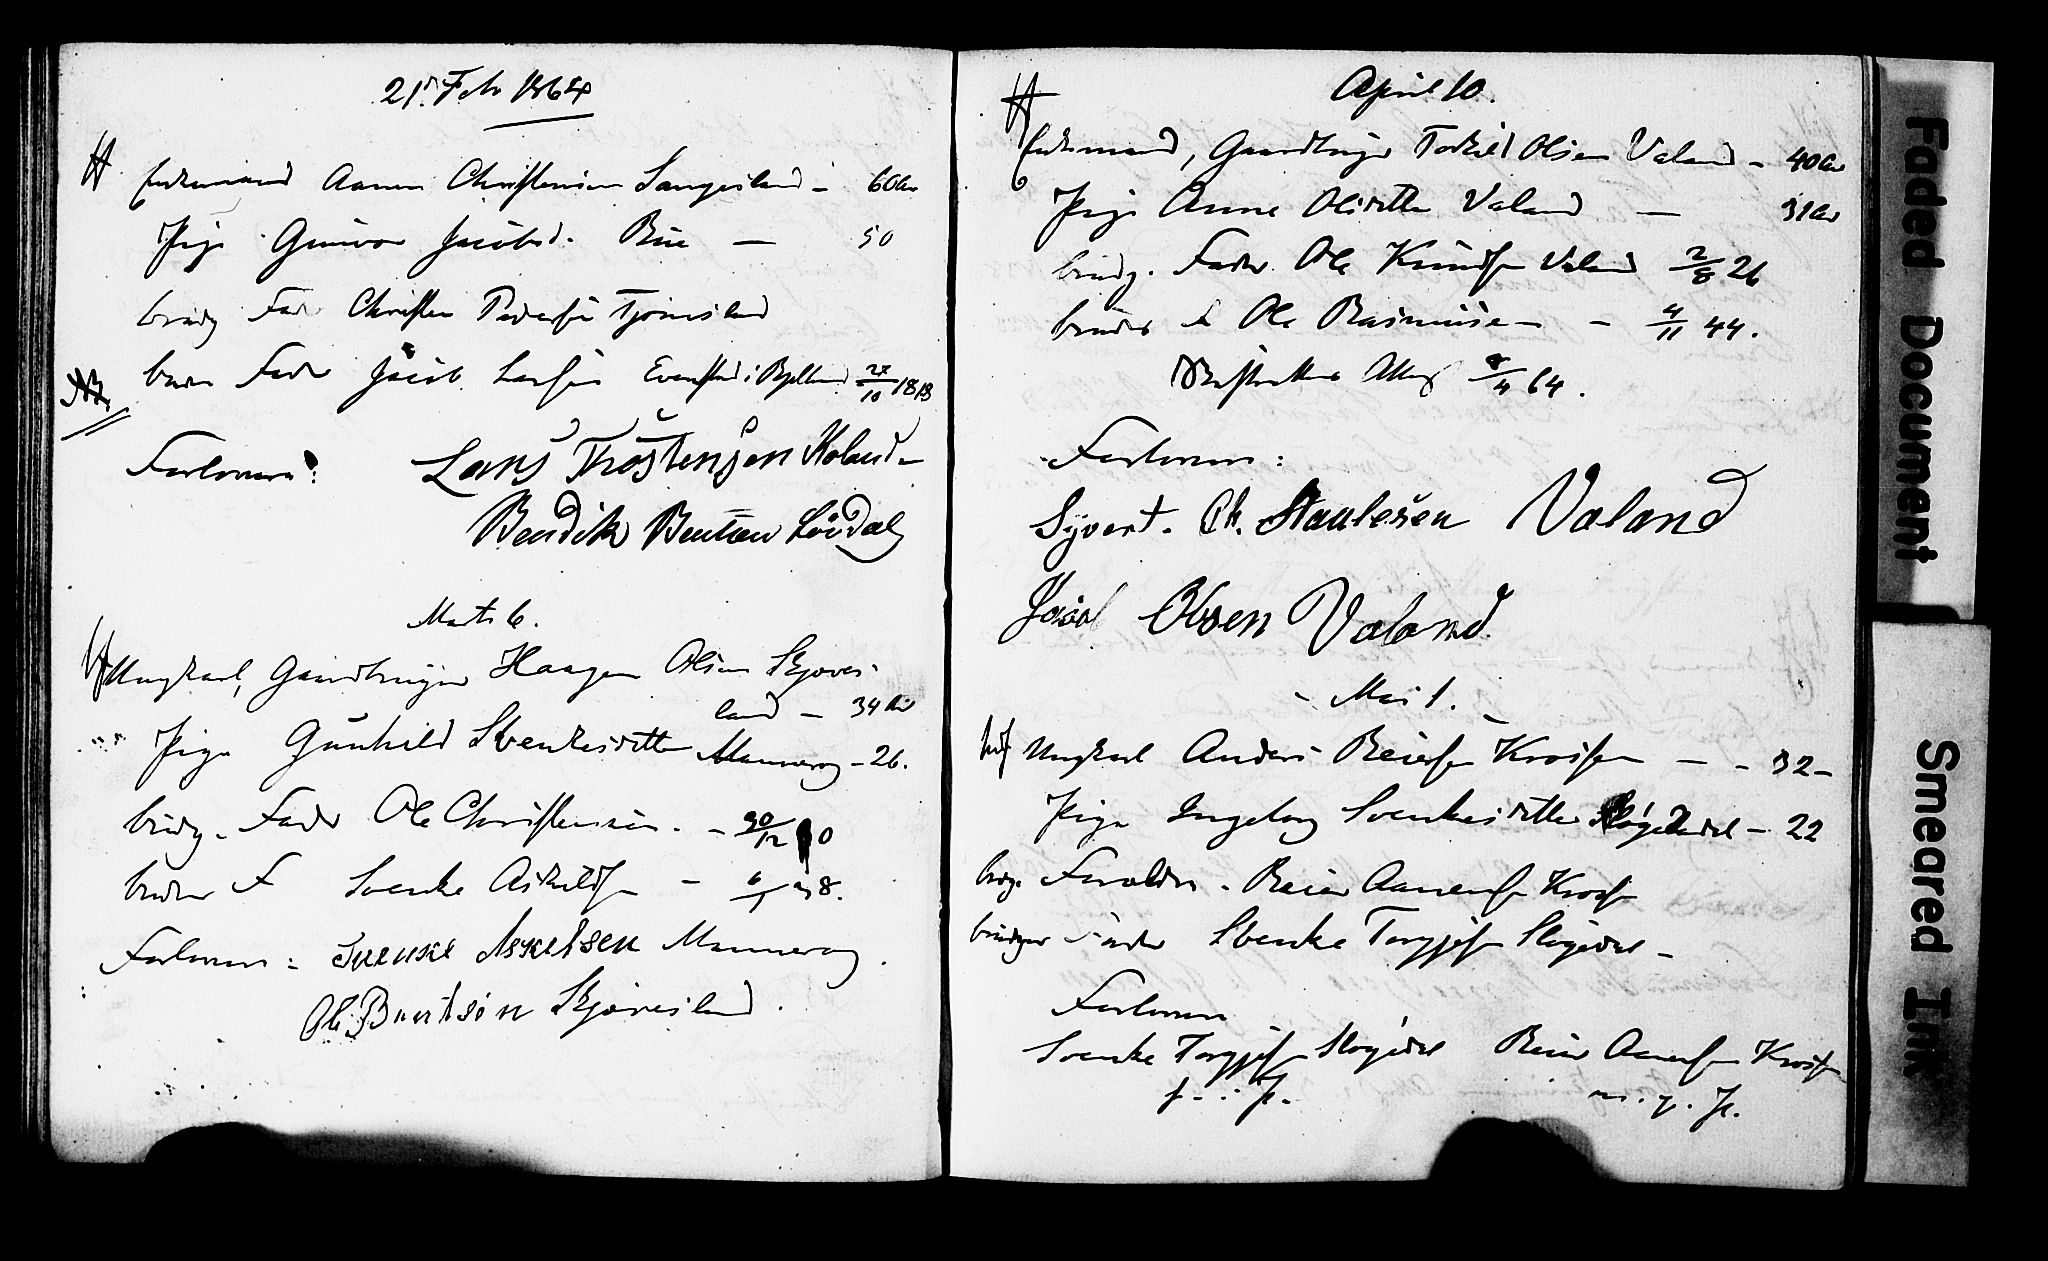 21d Feb 1864
Enkemand Aanen Christensen Sangesland - 60 Aar
Pige Gunvor Jacobsd. Bue — 50
brudg Fader Christen Pedersen Tjomsland
brudens Fader Jacob Larsen Evensstad i Bjelland 27/10 1813
NB.
Forlovere:
Lars Trostensen Holand
Bendik Bentsen Løvdal
Marts 6.
Ungkarl, Gaardbruger Haagen Olsen Skjeves-
land — 34 Aar
Pige Gunhild Svenkesdatter Mannerog - 26.
brudg. Fader Ole Christensen - 30/12
brudens F Svenke Askildsen -
Forlovere: Svenke Askelsen Mannerog.
Ole Berntsøn Skjævesland.
April 10.
Enkemand, Gaardbruger Torkild Olsen Valand - 40 Aar
Pige Anne Olsdatter Valand — 31 Aar
brudg. Fader Ole Knudsen Valand 2/8 26
brudens F Ole Rasmussen - 4/11 44.
Skifteretten Att. 8/4 64.
Forlovere:
Syvert. Ch. Staulesen Valand
Jacob Olsen Valand.
- Mai 1. -
Ungkarl Anders Reiersen Krossen - - 32 -
Pige Ingeborg Svenkesdatter Sløgedal - 22
brudg. Forældre. Reier Aanensen Krossen
Fader Svenke Torgjersen Sløgedal -
Forlovere
Svenke Torgjersen Sløgedal Reier Aanensen Krossen
m. p. P.
Faded Document
Smeared Ink